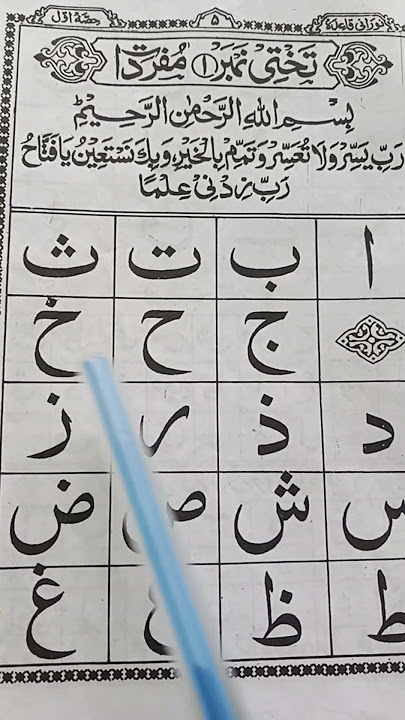 نورانی قاعدہ ۵ حصہ اول
تختی نمبر ۱ مفردات
بِسْمِ اللهِ الرَّحْمٰنِ الرَّحِيْمِ
رَبِّ يَسِّرْ وَلَا تُعَسِّرْ وَتَمِّمْ بِالْخَيْرِ وَبِكَ نَسْتَعِيْنُ يَا فَتَّاحُ
رَبِّ زِدْنِیْ عِلْمًا
ا ب ت ث
ج ح خ
د ذ ر ز
س ش ص ض
ط ظ ع غ